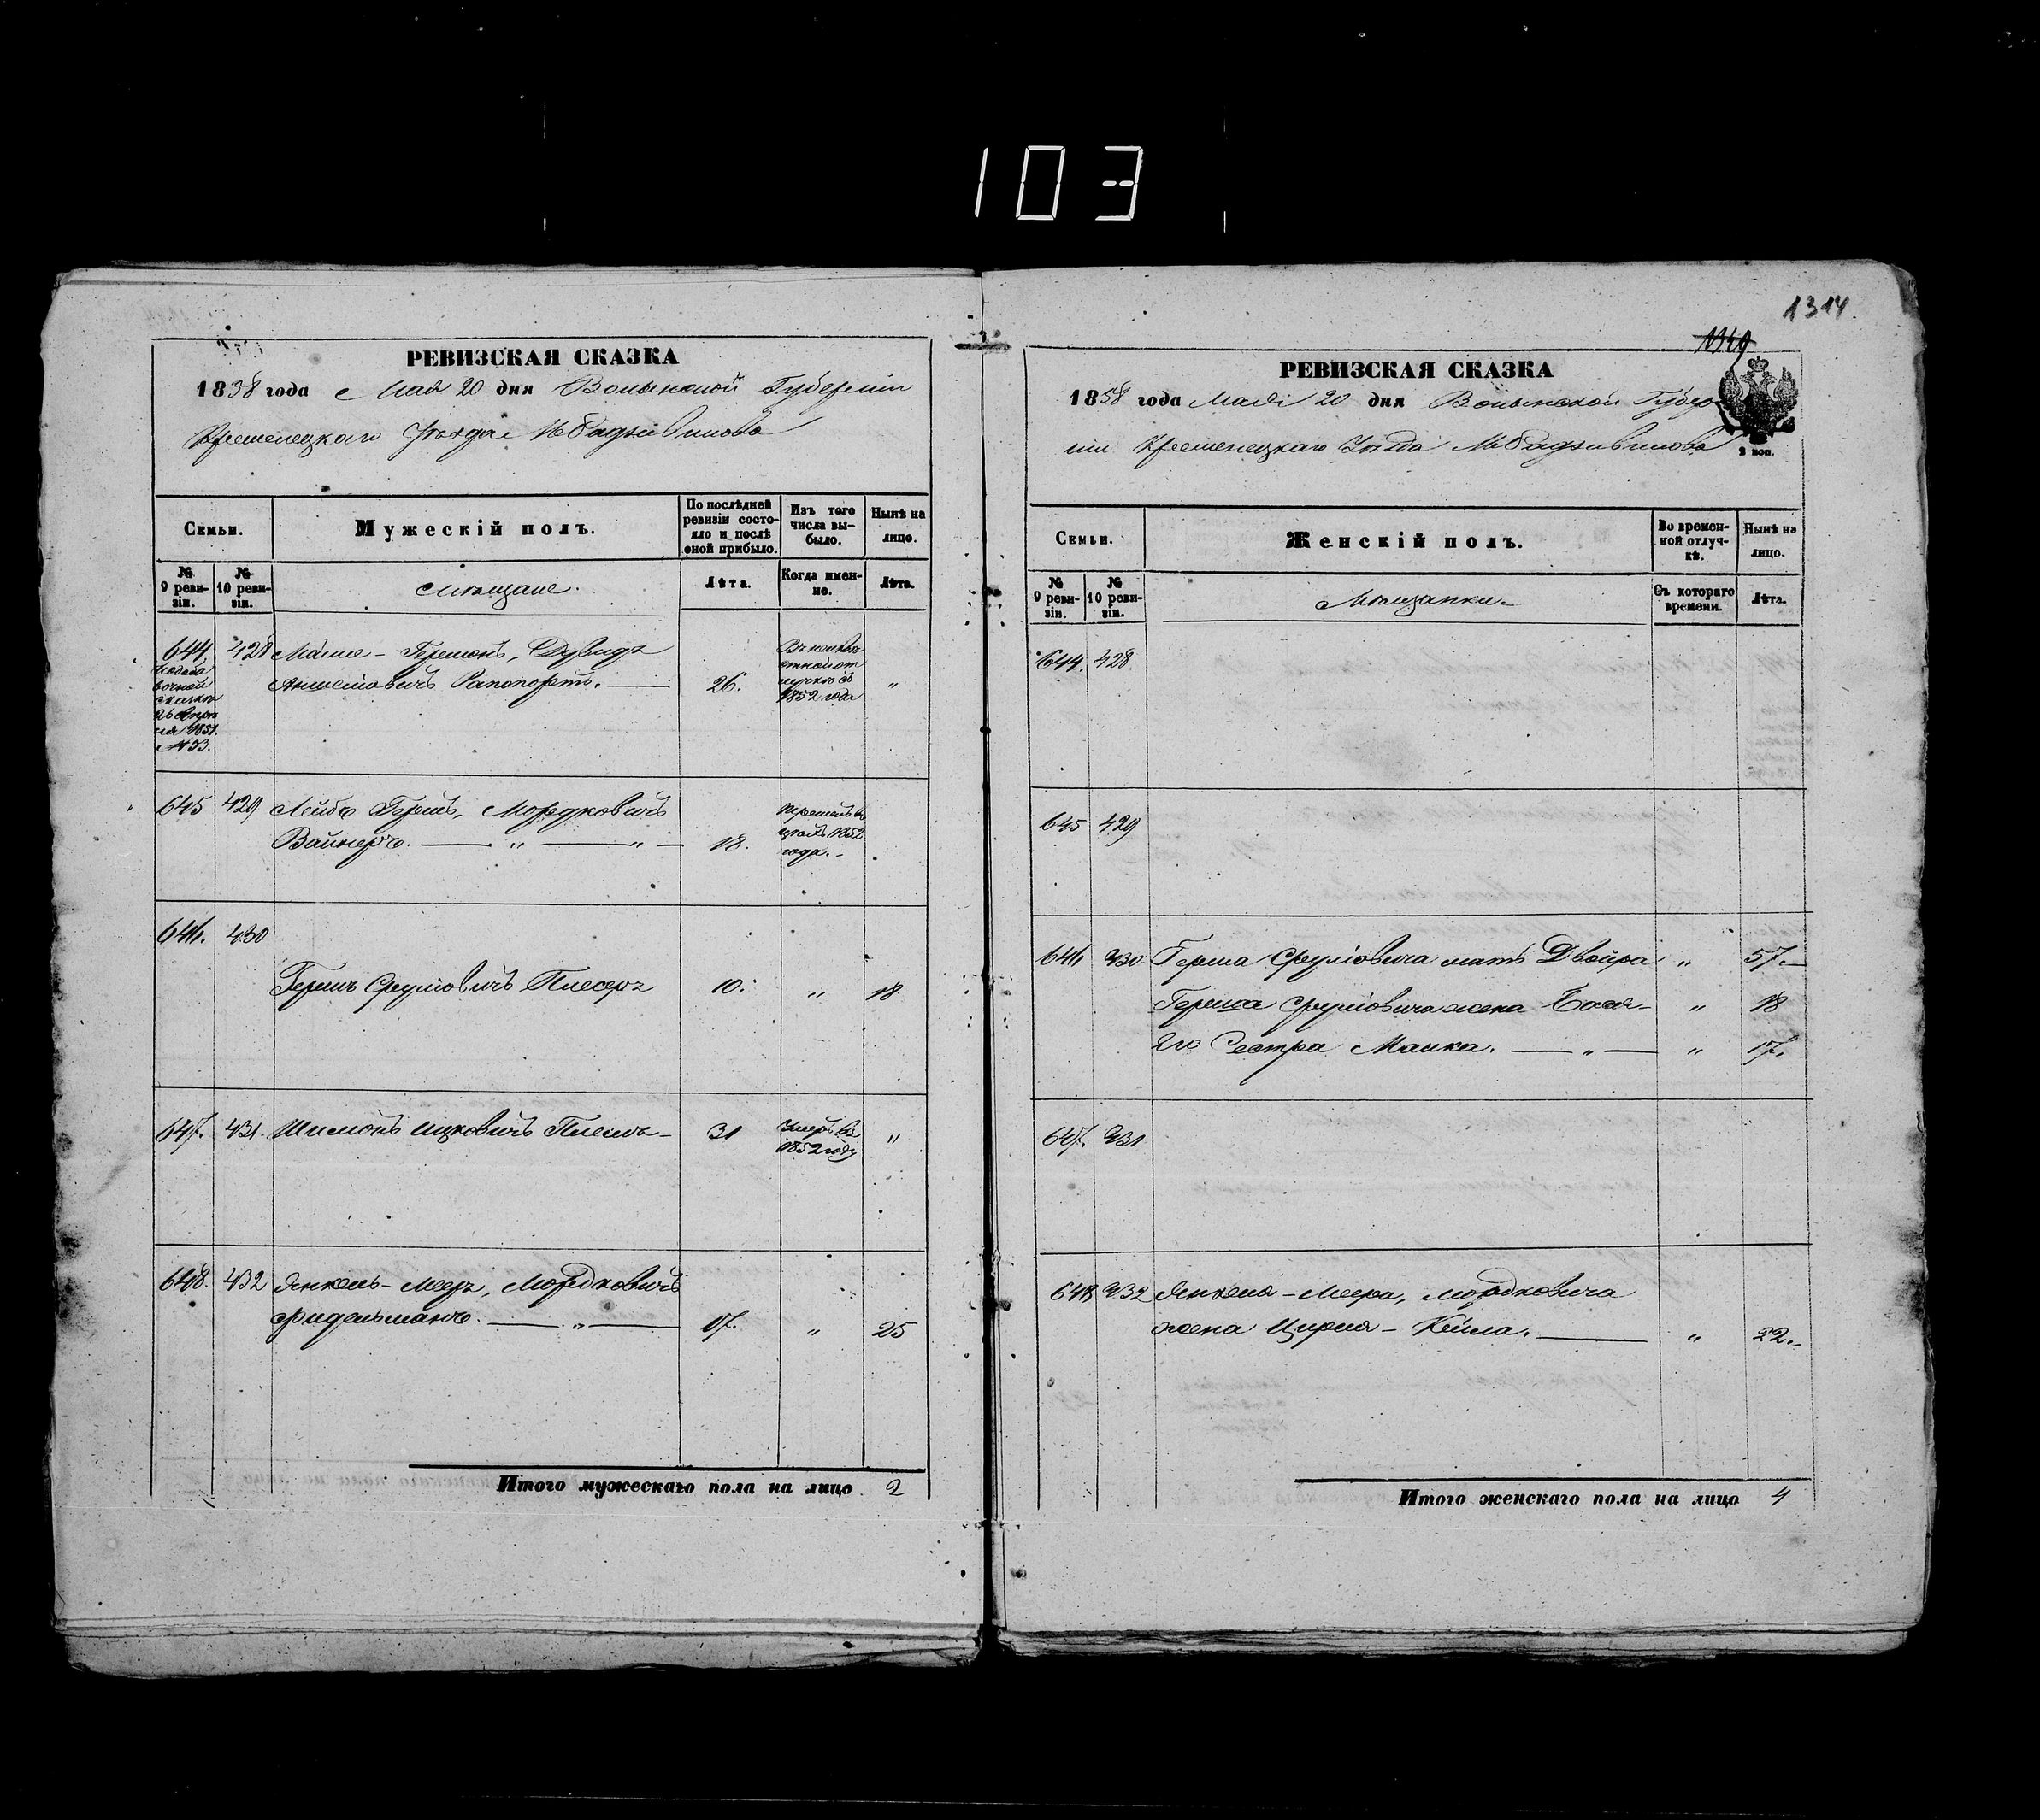 103
РЕВИЗСКАЯ СКАЗКА
1858 года Мая 20 дня Волынской Губерніи
Кременецкаго Уѣзда М Радзивилова
Семьи.
Мужескій полъ.
По послѣдней ревизіи состояло и послѣ оной прибыло.
Изъ того числа выбыло.
Нынѣ на лицо.
№ 9 ревизіи.
№ 10 ревизіи.
Мѣщане.
Лѣта.
Когда именно.
Лѣта.
644 428 Гершонъ, Дувидъ
Рапопортъ. 26. 1852 года "
1851
№ 33.
645 429 Лейбъ Гершъ, Мордковичъ
Вайнеръ. " " 18. 1852 года.
646. 430
Гершъ Сруліовичъ 10. " 18
647. 431. Шимонъ Ицковичъ 31 Умеръ въ 1852 году "
648. 432 Янкель-Мееръ, Мордковичъ
Фидельманъ. " 17. " 25
Итого мужескаго пола на лицо 2
1314.
1349
РЕВИЗСКАЯ СКАЗКА
1858 года Мая 20 дня Волынской Губер
ніи Кременецкаго Уѣзда М Радзивилова
2 коп.
Семьи.
Женскій полъ.
Во временной отлучкѣ.
Нынѣ на лицо.
№ 9 ревизіи.
№ 10 ревизіи.
Мѣщанки.
Съ котораго времени.
Лѣта.
644. 428.
645 429
646 430 Герша Сруліовича мать Двойра " 57.
Герша Сруліовича жена Бася " 18
Его Сестра Малка. " " 17.
647. 431
648 432 Янкеля-Меера, Мордковича
жена Цирля-Кейла. " 22.
Итого женскаго пола на лицо 4